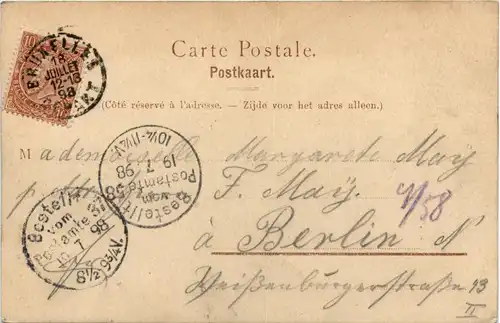 Carte Postale.
Postkaart.
(Côté réservé à l'adresse. — Zijde voor het adres alleen.)
10
BRUXELLES
18
JUILLET
12-13
98
DEPART
Mademoiselle Margarete May
F. May.
N/58
à Berlin N
Weißenburgerstraße 13
II
Bestellt
vom
Postamte 58
19 7 98
10¼-11¼V.
Bestellt
vom
Postamte
19 7 98
8½-9¾V.